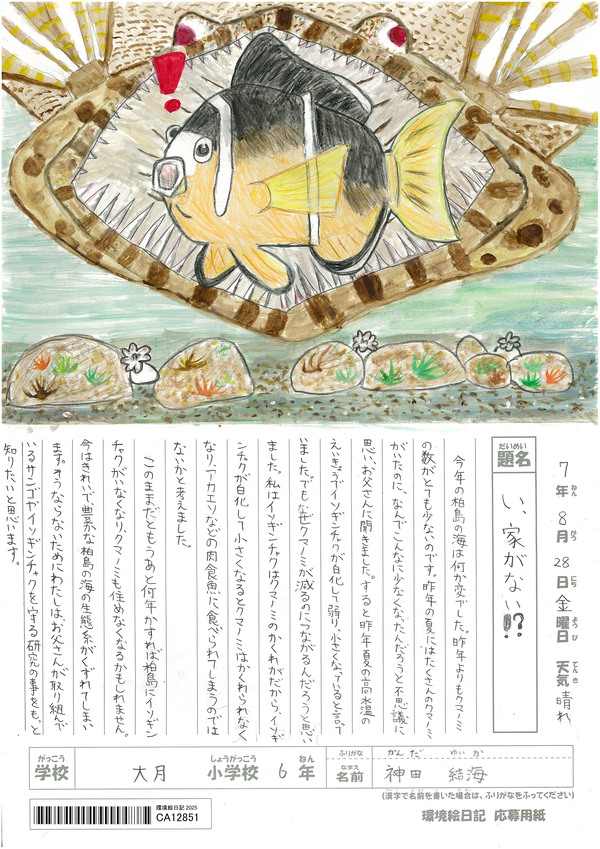 7年 8月 28日 金曜日 天気 晴れ
ねん がつ にち ようび てんき
だいめい
題名
い家がない!?
今年の柏島の海は何か変でした。昨年よりもクマノミ
の数がとても少ないのです。昨年の夏にはたくさんのクマノミ
がいたのに、なんでこんなに少なくなったんだろうと不思議に
思い、お父さんに聞きました。すると昨年夏の高水温の
えいきょうでイソギンチャクが白化して弱り、小さくなっていると言って
いました。でもなぜクマノミが減るのにつながるんだろうと思い
ました。私はイソギンチャクはクマノミのかくれがだから、イソギ
ンチャクが白化して小さくなるとクマノミはかくれられなく
なり、アカエソなどの肉食魚に食べられてしまうのでは
ないかと考えました。
このままだともうあと何年かすれば柏島にイソギン
チャクがいなくなり、クマノミも住めなくなるかもしれません。
今はきれいで豊かな柏島の海の生態系がくずれてしまい
ます。そうならないためにわたしは、お父さんが取り組んで
いるサンゴやイソギンチャクを守る研究の事をもっと
知りたいと思います。
がっこう しょうがっこう ねん
学校 大月 小学校 6年
ふりがな かんだ ゆいか
なまえ
名前 神田 結海
(漢字で名前を書いた場合は、ふりがなをふってください)
環境絵日記 2025
CA12851
環境絵日記 応募用紙